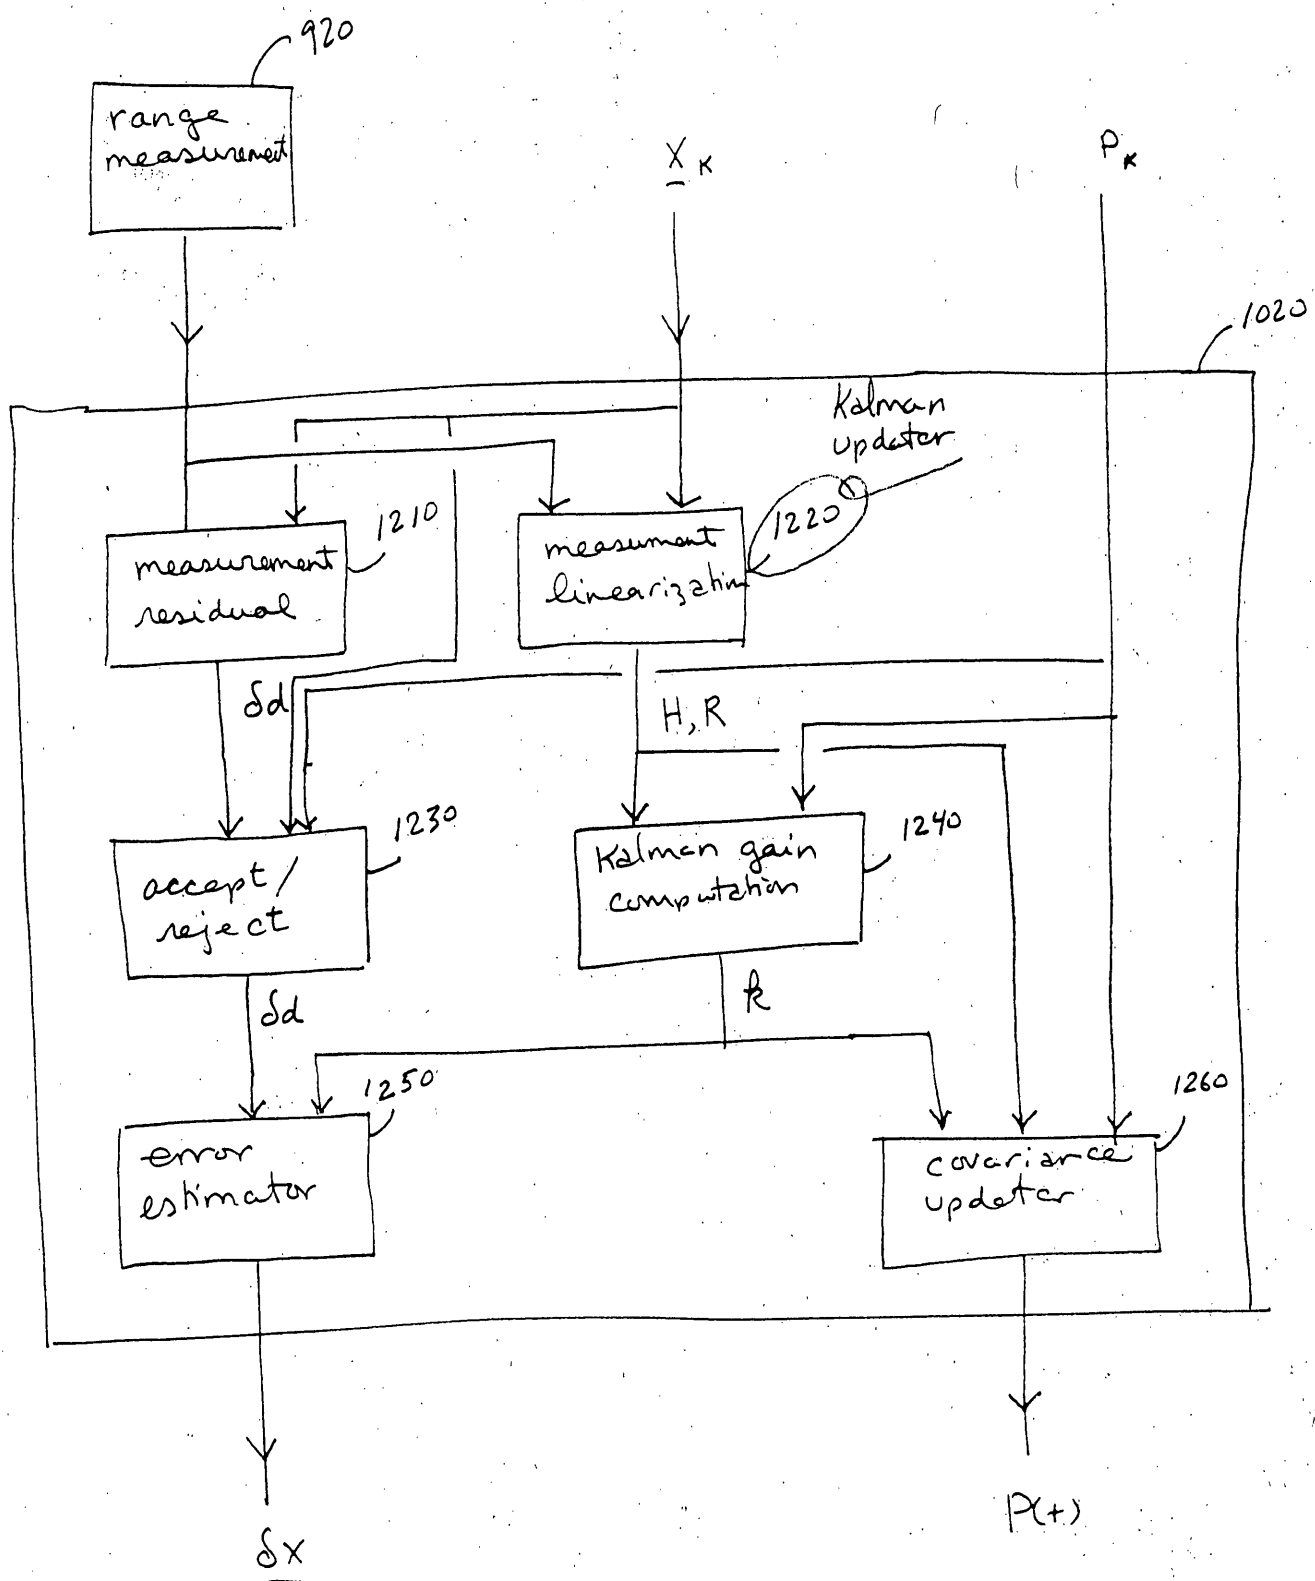 920
range
measurement
X K
P K
1020
Kalman
updater
1210
1220
measurement
residual
measument
linearization
δd
H, R
1230
1240
accept/
reject
Kalman gain
computation
δd
k
1250
1260
error
estimator
covariance
updater
P(+)
δx